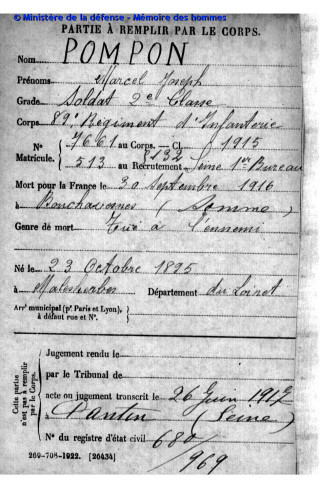 © Ministère de la défense - Mémoire des hommes
PARTIE À REMPLIR PAR LE CORPS.
Nom POMPON
Prénoms Marcel Joseph
Grade Soldat 2e Classe
Corps 89e Régiment d'Infanterie
N° 7661 au Corps. — Cl. 1915
Matricule. 513 au Recrutement Seine 1er Bureau
Mort pour la France le 30 Septembre 1916
à Bouchavesnes (Somme)
Genre de mort Tué à l'ennemi
Né le 23 Octobre 1895
à Malesherbes Département du Loiret
Arrt municipal (pr Paris et Lyon), à défaut rue et N°.
Cette partie n'est pas à remplir par le Corps.
Jugement rendu le
par le Tribunal de
acte ou jugement transcrit le 26 Juin 1917
à Pantin (Seine)
N° du registre d'état civil 680/
969
269-708-1922. [26434]